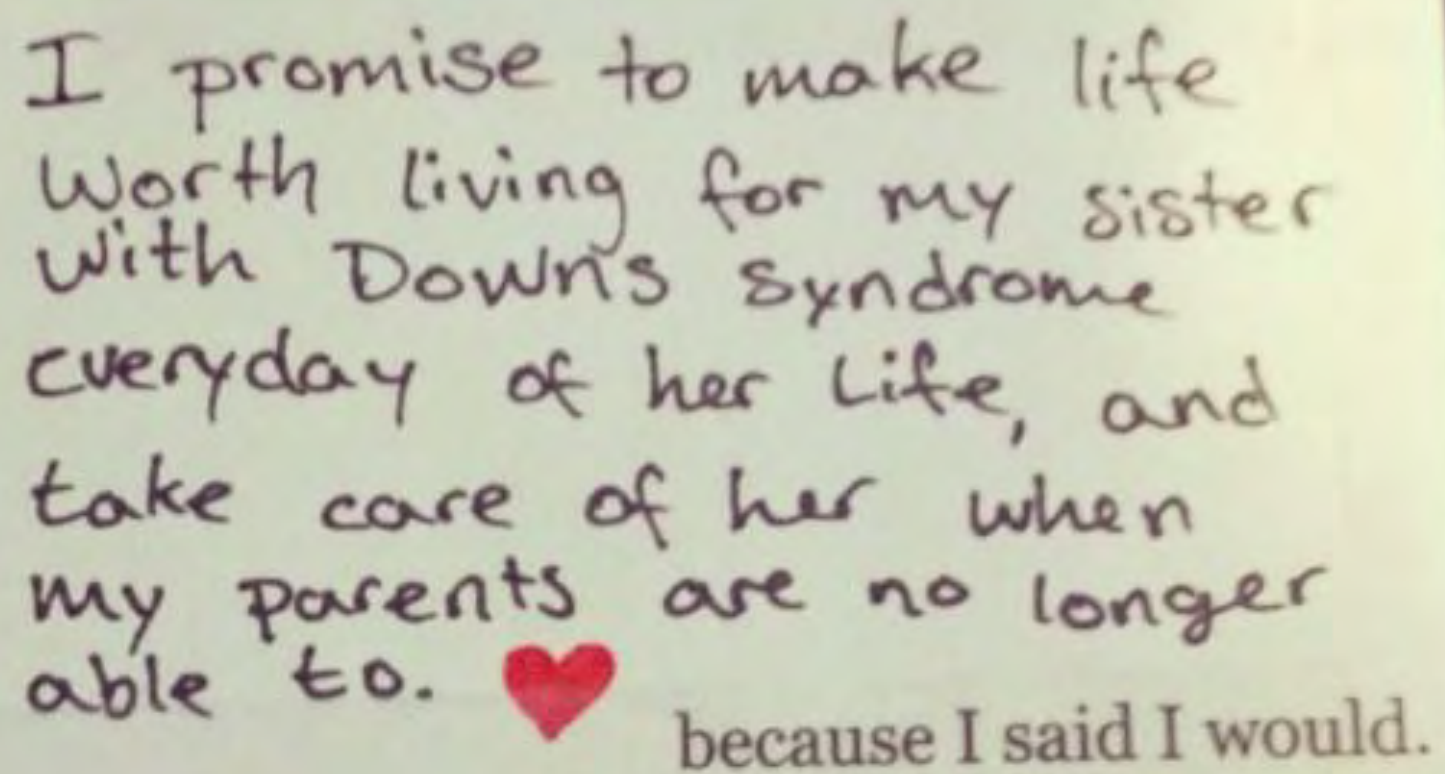 I promise to make life
Worth living for my sister
with Down's syndrome
everyday of her Life, and
take care of her when
my parents are no longer
able to.
because I said I would.